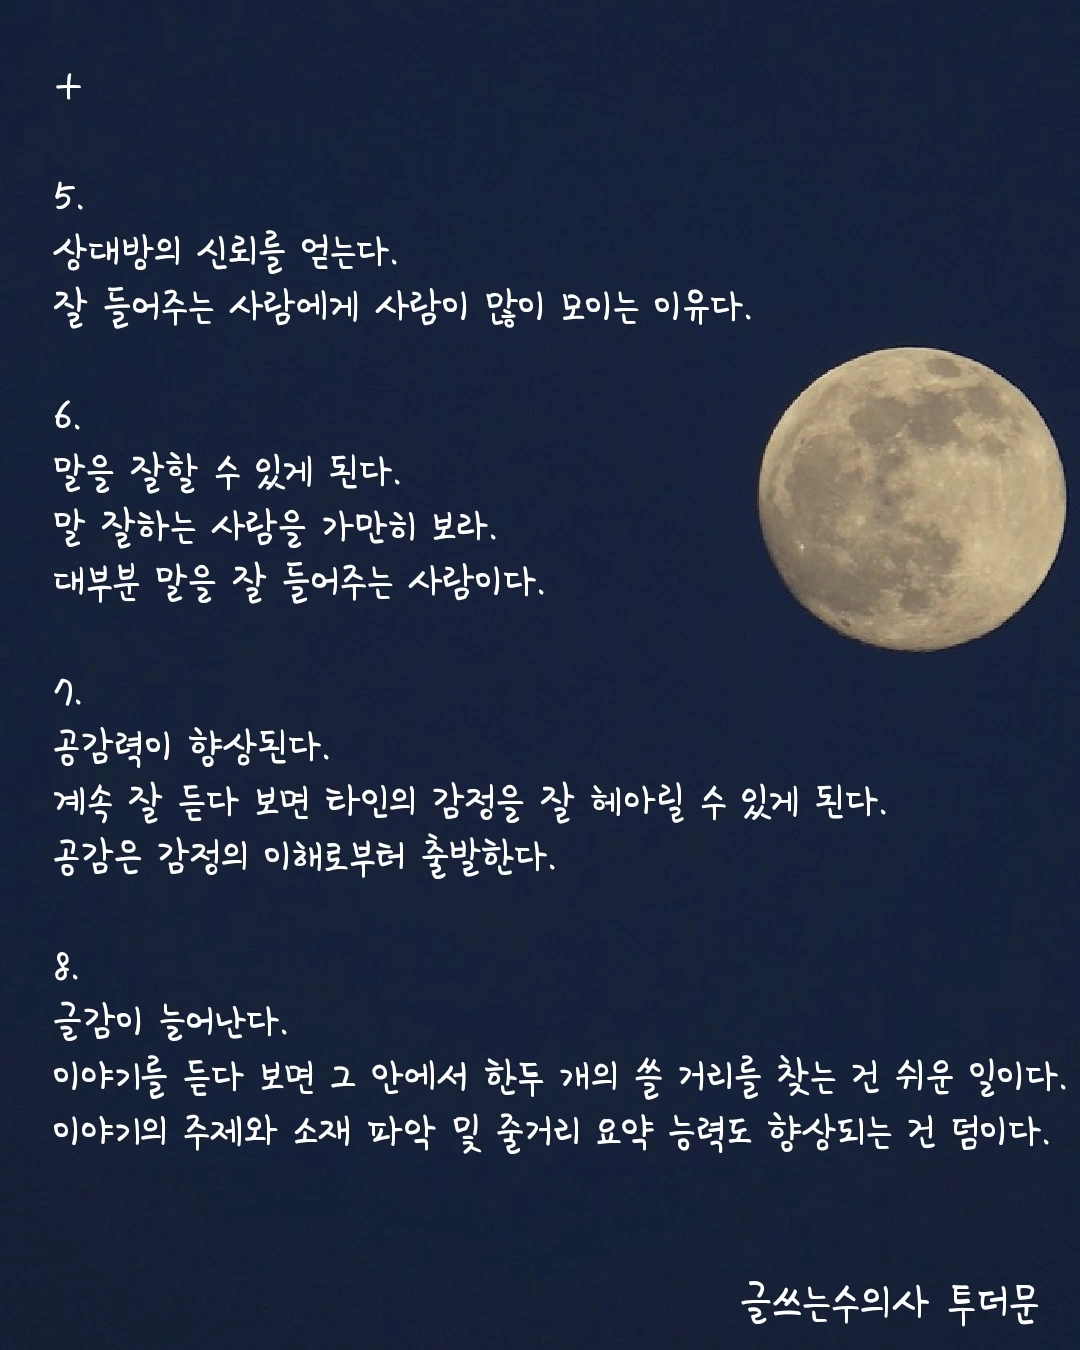 +
5.
상대방의 신뢰를 얻는다.
잘 들어주는 사람에게 사람이 많이 모이는 이유다.
6.
말을 잘할 수 있게 된다.
말 잘하는 사람을 가만히 보라.
대부분 말을 잘 들어주는 사람이다.
7.
공감력이 향상된다.
계속 잘 듣다 보면 타인의 감정을 잘 헤아릴 수 있게 된다.
공감은 감정의 이해로부터 출발한다.
8.
글감이 늘어난다.
이야기를 듣다 보면 그 안에서 한두 개의 쓸 거리를 찾는 건 쉬운 일이다.
이야기의 주제와 소재 파악 및 줄거리 요약 능력도 향상되는 건 덤이다.
글쓰는수의사 투더문